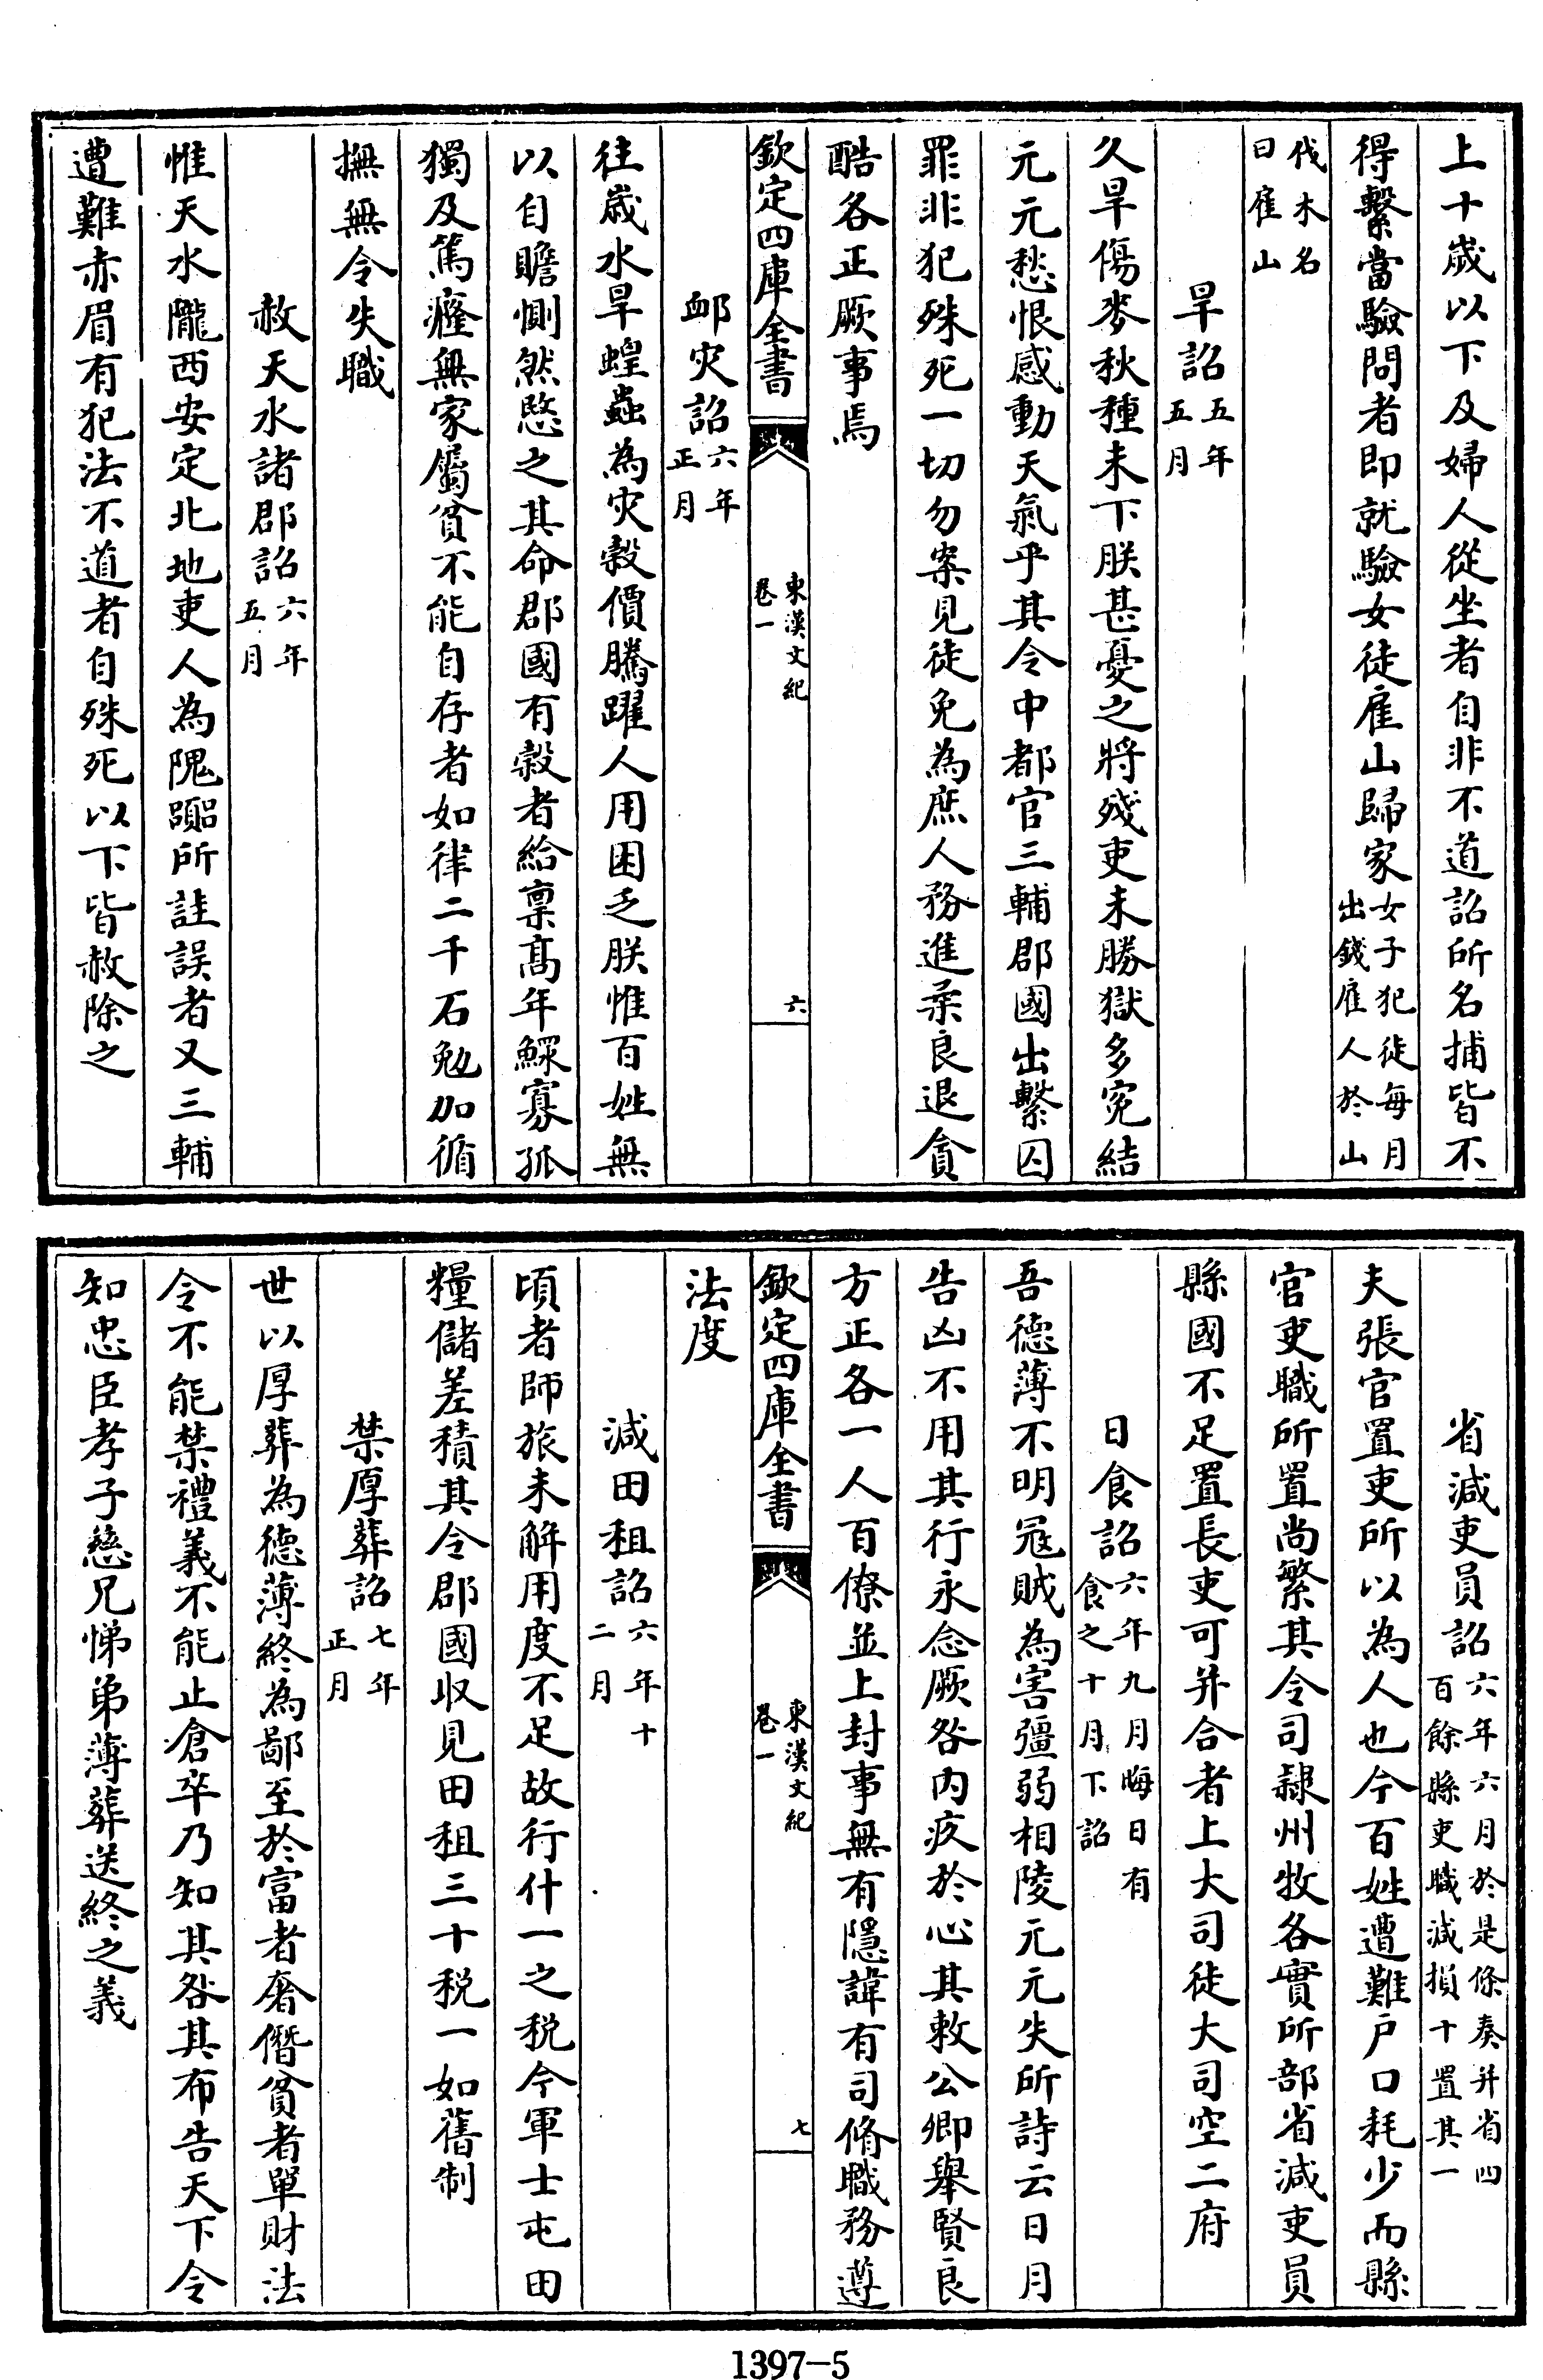 上十歳以下及婦人從坐者自非不道詔所名捕皆不
得繫當驗問者即就驗女徒雇山歸家女子犯徒每月出錢雇人於山
伐木名曰雇山
旱詔五年五月
久旱傷麥秋種未下朕甚憂之將殘吏未勝獄多寃結
元元愁恨感動天氣乎其令中都官三輔郡國出繫囚
罪非犯殊死一切勿案見徒免為庶人務進柔良退貪
酷各正厥事焉
欽定四庫全書
東漢文紀
卷一
六
䘏灾詔六年正月
往歲水旱蝗蟲為灾穀價騰躍人用困乏朕惟百姓無
以自贍惻然愍之其命郡國有穀者給稟髙年鰥寡孤
獨及篤癃無家屬貧不能自存者如律二千石勉加循
撫無令失職
赦天水諸郡詔六年五月
惟天水隴西安定北地吏人為隗囂所詿誤者又三輔
遭難赤眉有犯法不道者自殊死以下皆赦除之
省減吏員詔六年六月於是條奏并省四百餘縣吏職減損十置其一
夫張官置吏所以為人也今百姓遭難戶口耗少而縣
官吏職所置尚繁其令司隷州牧各實所部省減吏員
縣國不足置長吏可并合者上大司徒大司空二府
日食詔六年九月晦日有食之十月下詔
吾德薄不明冦賊為害彊弱相陵元元失所詩云日月
告凶不用其行永念厥咎内疚於心其敕公卿舉賢良
方正各一人百僚並上封事無有隱諱有司脩職務遵
欽定四庫全書
東漢文紀
卷一
七
法度
減田租詔六年十二月
頃者師旅未解用度不足故行什一之税今軍士屯田
糧儲差積其令郡國收見田租三十税一如舊制
禁厚葬詔七年正月
世以厚葬為德薄終為鄙至於富者奢僭貧者單財法
令不能禁禮義不能止倉卒乃知其咎其布告天下令
知忠臣孝子慈兄悌弟薄葬送終之義
1397-5